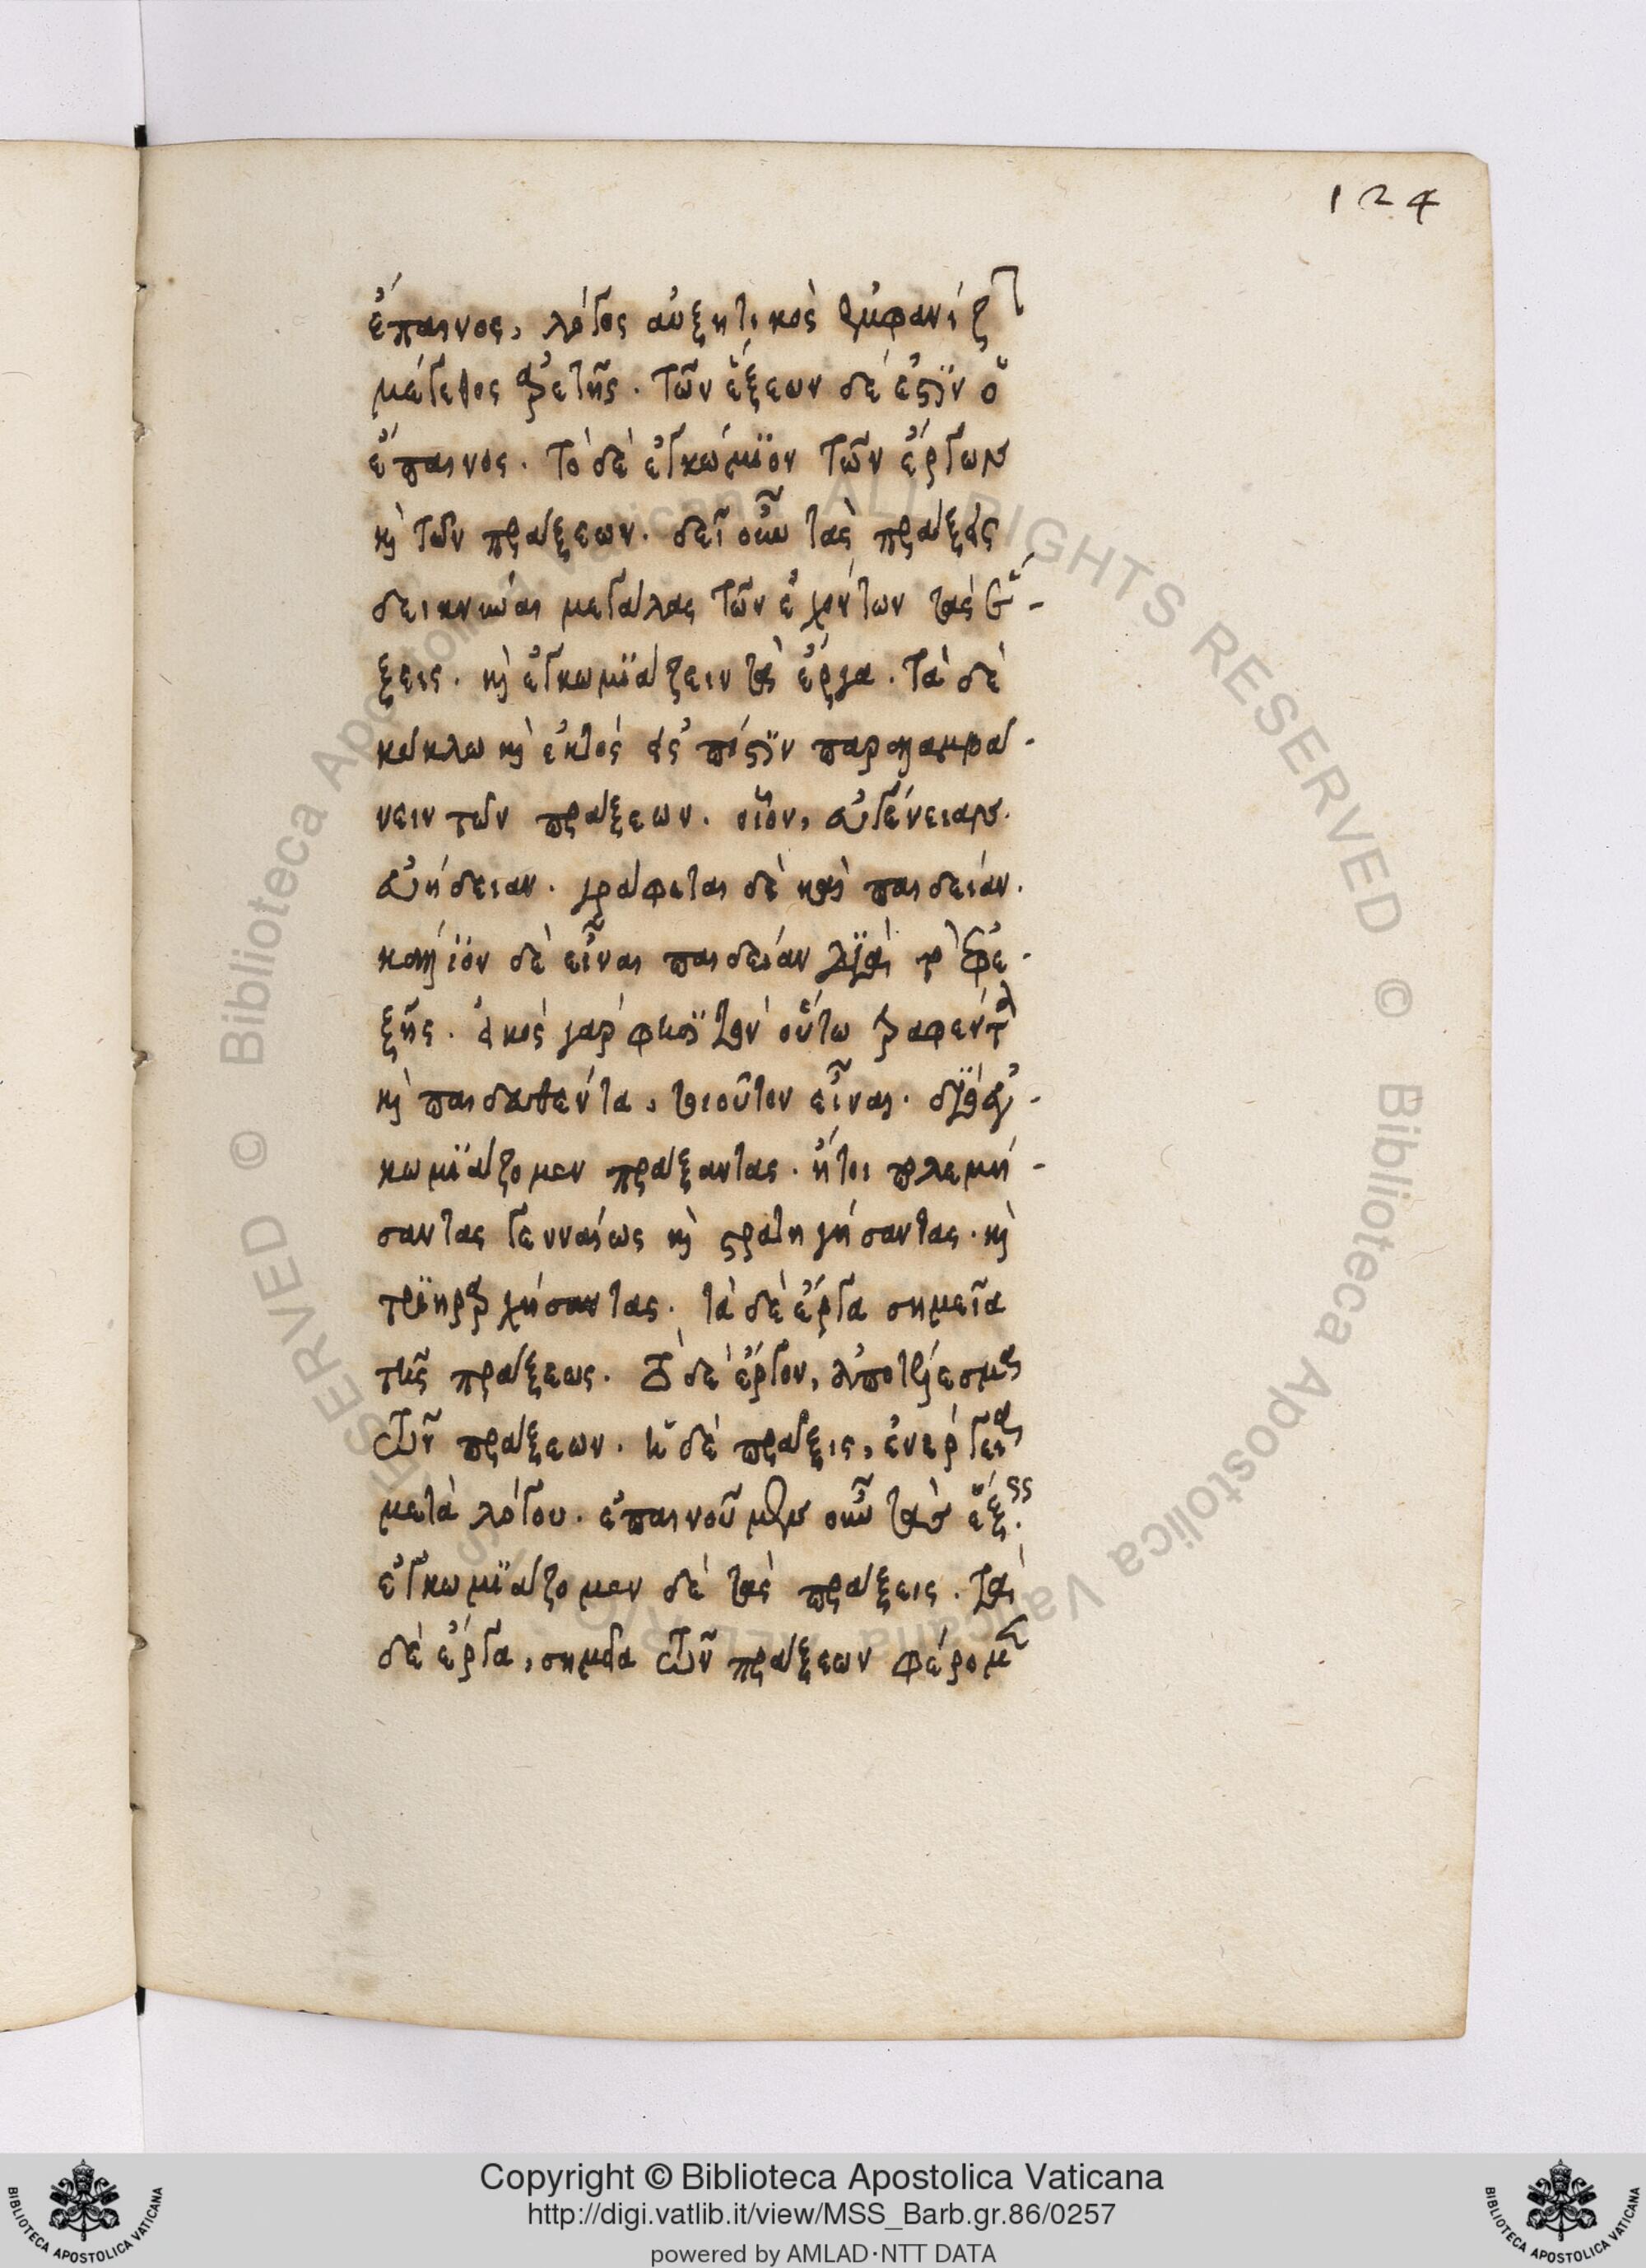 124
ἔπαινος, λόγος αὐξητικὸς ἐμφανίζ
μέγεθος ἀρετῆς. τῶν ἕξεων δέ ἐστϊν ὁ
ἔπαινος. τὸ δὲ ἐγκώμϊον τῶν ἔργων
καὶ τῶν πράξεων. δεῖ οὖν τὰς πράξεις
δεικνύναι μεγάλας τῶν ἐχόντων τὰς ἕ-
ξεις. καὶ ἐγκωμϊάζειν τὰ ἔργα. τὰ δὲ
κύκλω καὶ ἐκτός εἰς πίστϊν παραλαμβά-
νειν τῶν πράξεων. οἷον, εὐγένειαν.
εὐήδειαν. γράφεται δὲ καὶ παιδείαν.
κάλλϊον δὲ εἶναι παιδείαν διὰ τὸ ἐφε-
ξῆς. εἰκός γὰρ φησὶ τὸν οὕτω τραφέντα
καὶ παιδευθέντα, τοιοῦτον εἶναι. διὸ ἐγ-
κωμϊάζομεν πράξαντας. ἤτοι πολεμή-
σαντας γενναίως καὶ στρατηγήσαντας. καὶ
τρϊηραρχήσαντας. τὰ δὲ ἔργα σημεῖα
τῆς πράξεως. τὸ δὲ ἔργον, ἀποτέλεσμα
τῶν πράξεων. ἡ δὲ πρᾶξις, ἐνέργεια
μετὰ λόγου. ἐπαινοῦμεν οὖν τὰς ἕξεις.
ἐγκωμϊάζομεν δὲ τὰς πράξεις. τὰ
δὲ ἔργα, σημεῖα τῶν πράξεων φέρομεν
Copyright © Biblioteca Apostolica Vaticana
http://digi.vatlib.it/view/MSS_Barb.gr.86/0257
powered by AMLAD·NTT DATA